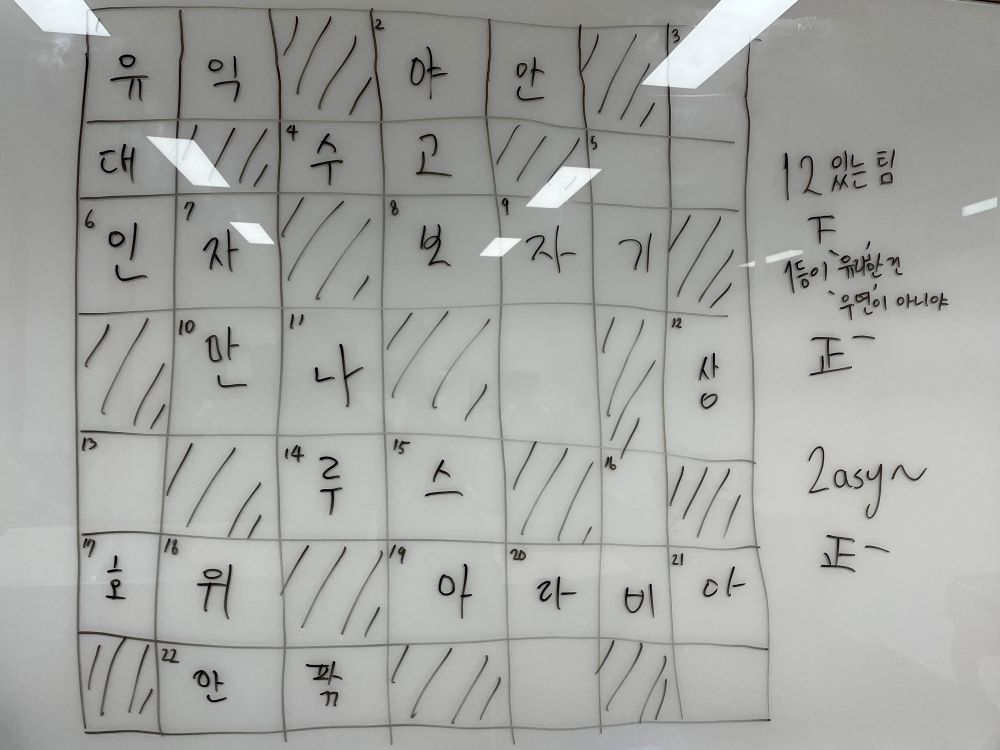 1 유 익 2 야 안 3
대 4 수 고 5
6 인 7 자 8 보 9 자 기
10 만 11 나 12 상
13 14 루 15 스 16
17 호 18 위 19 아 20 라 비 21 아
22 안
12 있는 팀
1등이 '유나'한 건
'우연'이 아니야
正一
2asy~
正一